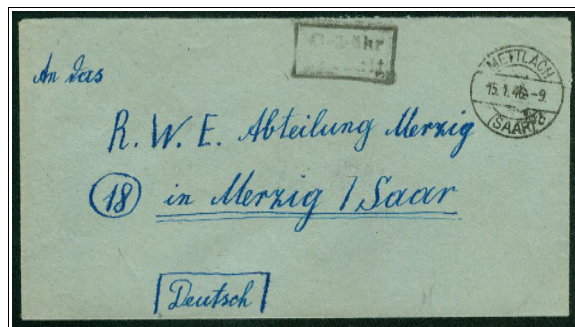 Gebühr
bezahlt
METTLACH
15.1.46-9
(SAAR)
An das
R. W. E. Abteilung Merzig
18 in Merzig / Saar
Deutsch